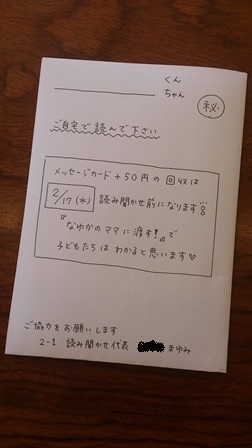 くん
ちゃん
㊙
ご自宅で読んで下さい
メッセージカード+50円の回収は
2/17(水) 読み聞かせ前になります
『なゆかのママに渡す!』で
子どもたちはわかると思います♡
ご協力をお願いします
2-1 読み聞かせ代表 まゆみ